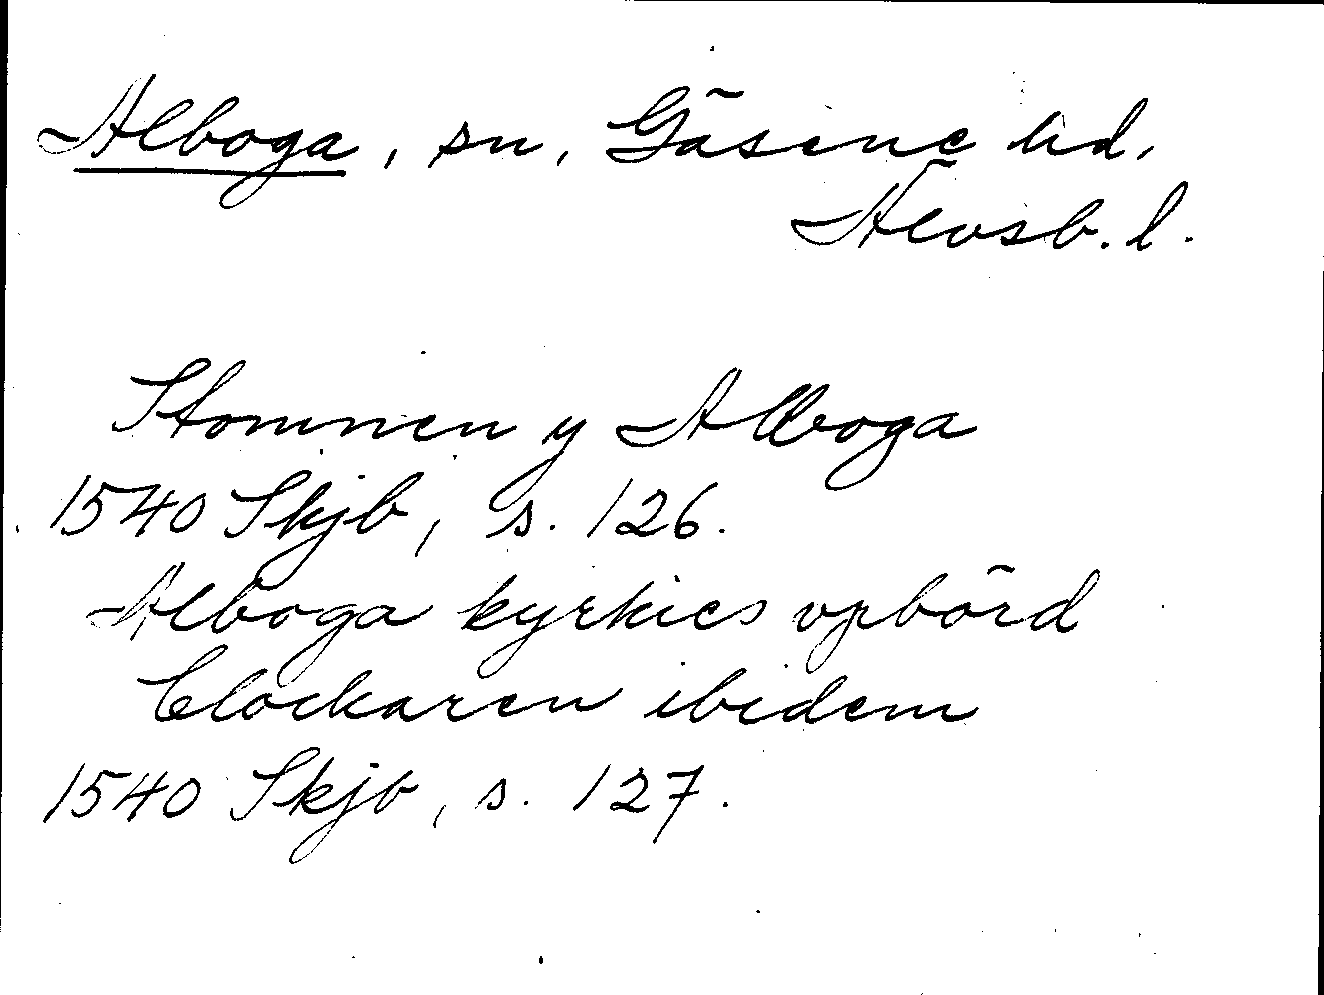 Alboga, sn, Gäsene hd,
Älvsb. l.
Stommen y Alboga
1540 Skjb, s. 126.
Alboga kyrkies vpbörd
Clockaren ibidem
1540 Skjb, s. 127.